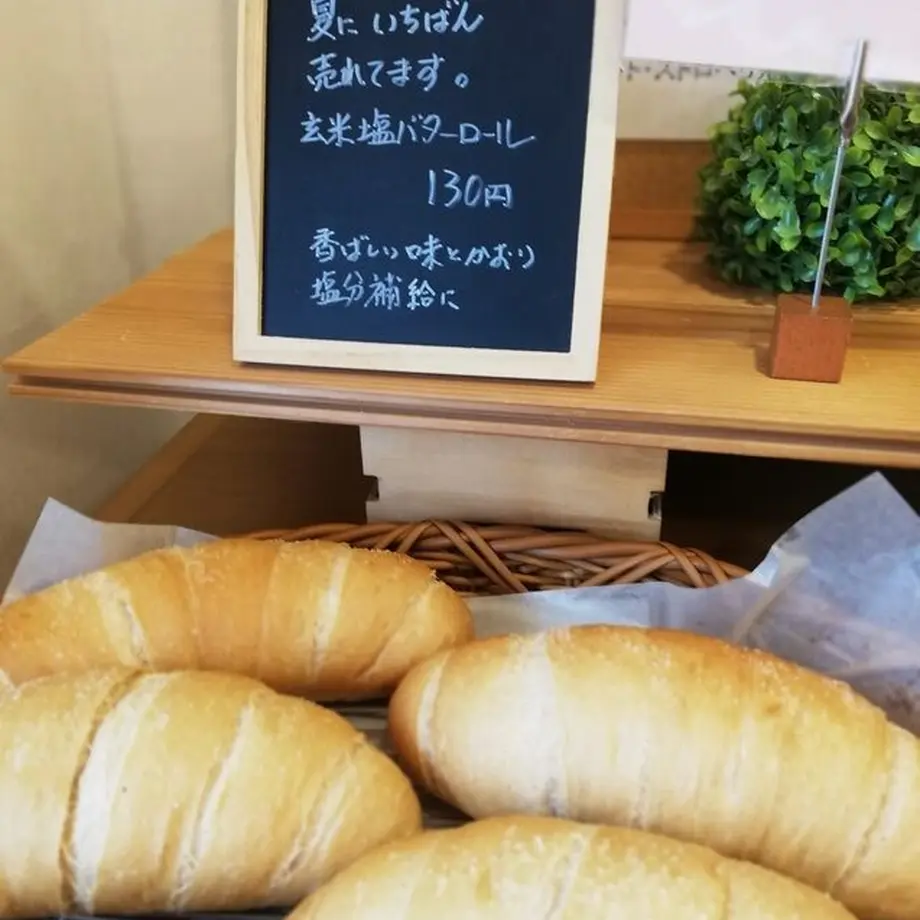 夏にいちばん
売れてます。
玄米塩バターロール
130円
香ばしい味とかおり
塩分補給に